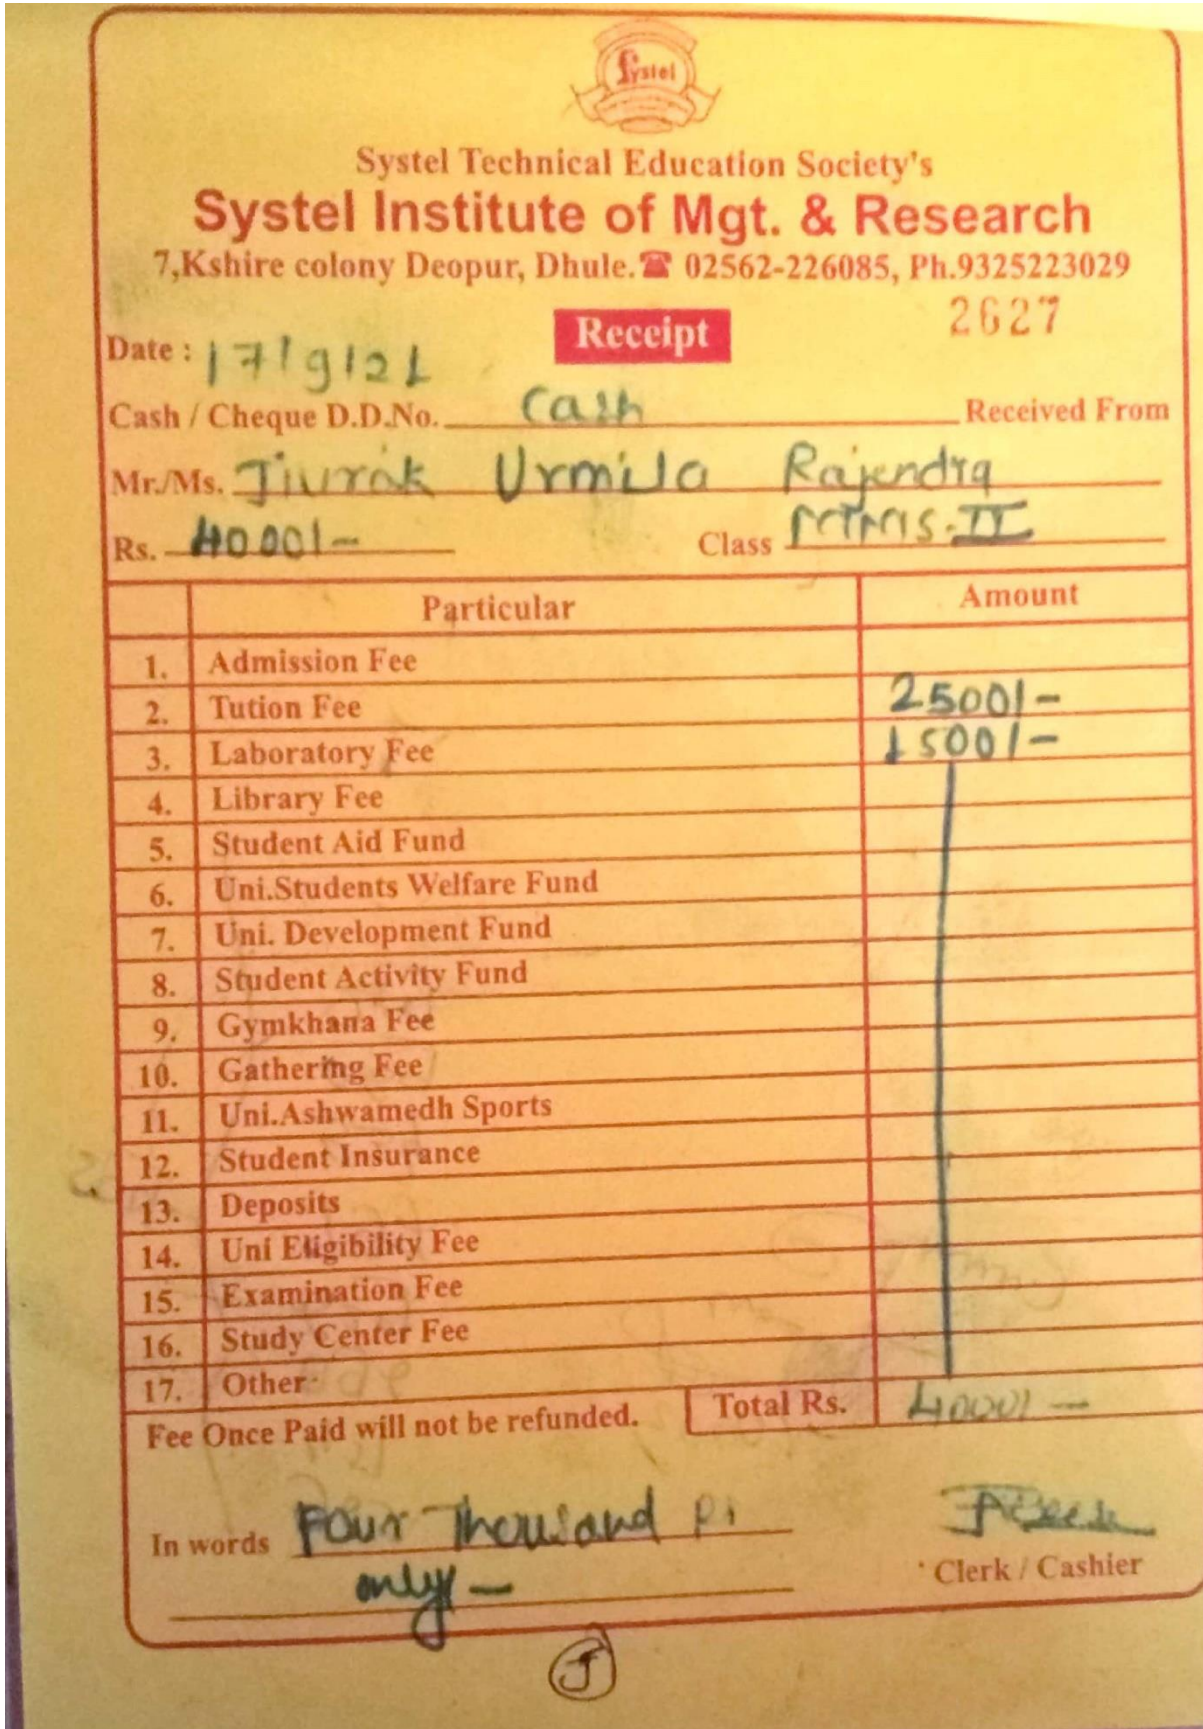 Systel
Systel Technical Education Society's
Systel Institute of Mgt. & Research
7,Kshire colony Deopur, Dhule.☎ 02562-226085, Ph.9325223029
Receipt 2627
Date : 17/9/21
Cash / Cheque D.D.No. Cash Received From
Mr./Ms. Urmila Rajendra
Rs. 4000/- Class II
Particular Amount
1. Admission Fee
2. Tution Fee 2500/-
3. Laboratory Fee 1500/-
4. Library Fee
5. Student Aid Fund
6. Uni.Students Welfare Fund
7. Uni. Development Fund
8. Student Activity Fund
9. Gymkhana Fee
10. Gathering Fee
11. Uni.Ashwamedh Sports
12. Student Insurance
13. Deposits
14. Uni Eligibility Fee
15. Examination Fee
16. Study Center Fee
17. Other
Fee Once Paid will not be refunded. Total Rs. 4000/-
In words Four Thousand
only/-
Clerk / Cashier